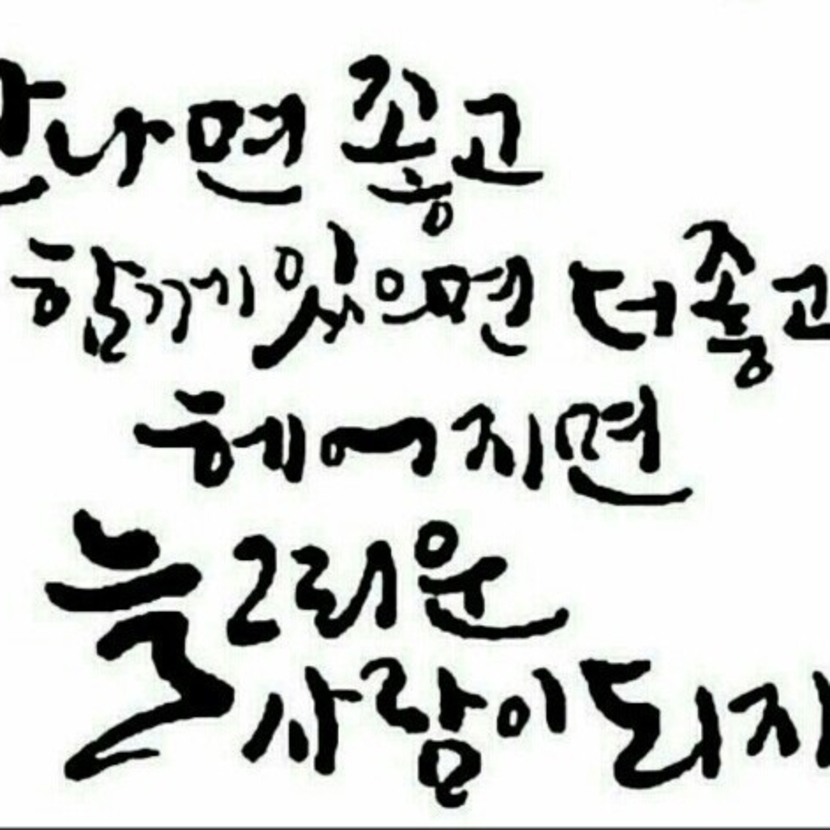 만나면 좋고
함께있으면 더좋고
헤어지면
늘 그리운
사람이되자